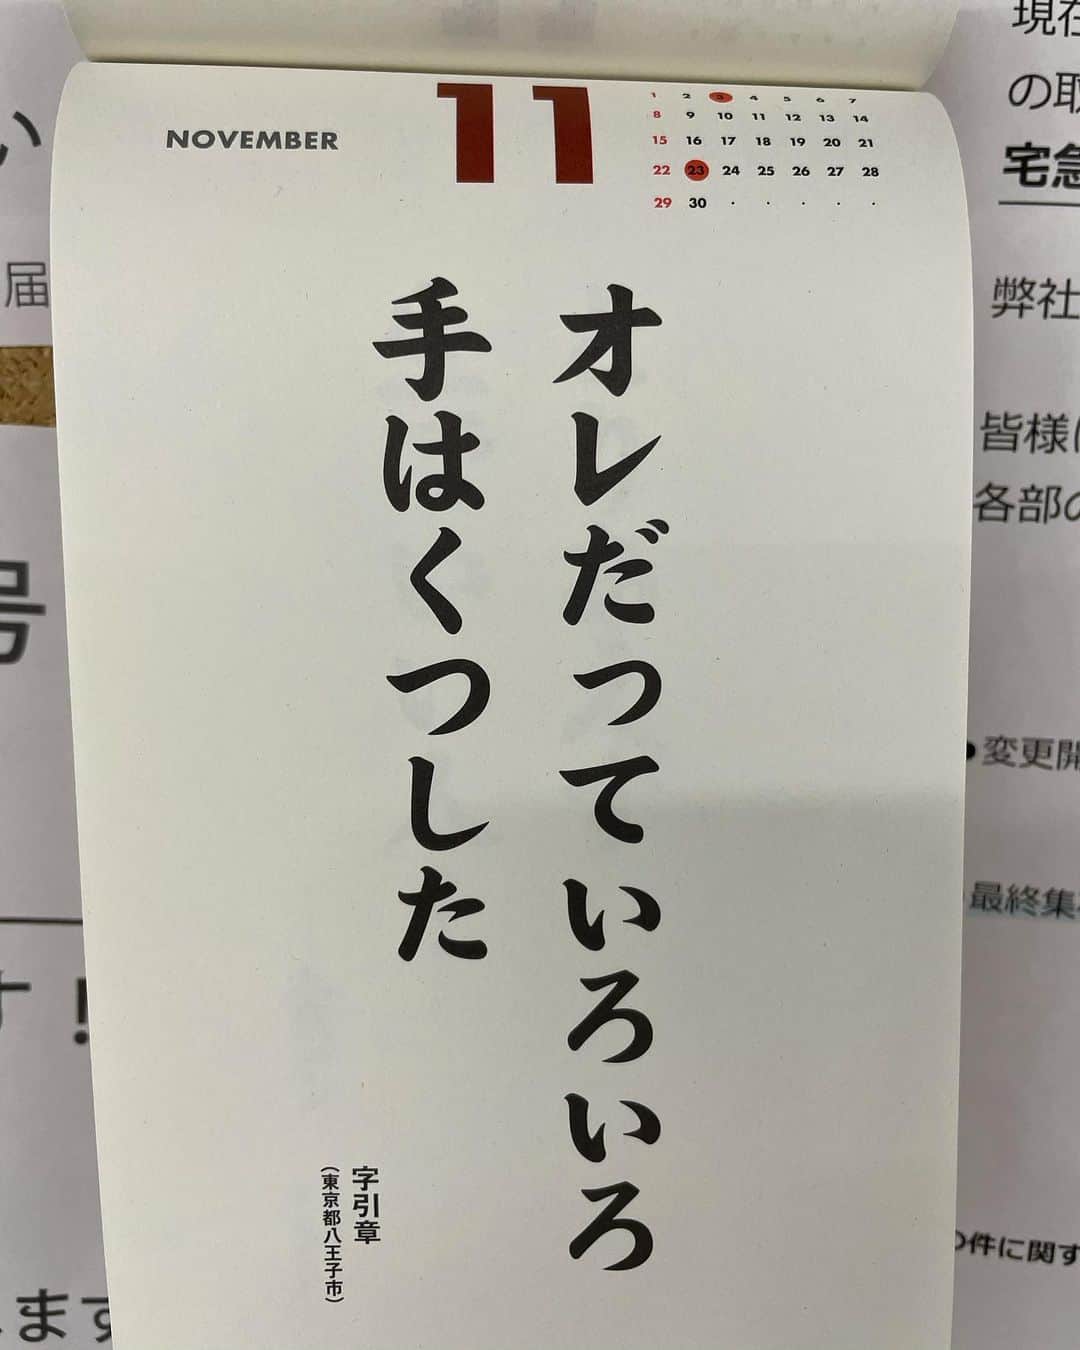 NOVEMBER
11
1 2 3 4 5 6 7
8 9 10 11 12 13 14
15 16 17 18 19 20 21
22 23 24 25 26 27 28
29 30 · · · · ·
オレだっていろいろ
手はくつした
字引章
(東京都八王子市)
い
届
号
す！
ます
現在
の取
宅急
弊社
皆様に
各部の
●変更開
最終集
の件に関す